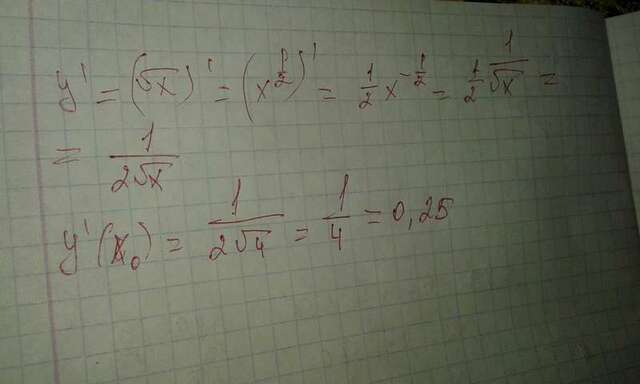 y' = (√x)' = (x^(1/2))' = 1/2 x^(-1/2) = 1/2 1/√x =
= 1/(2√x)
y'(x₀) = 1/(2√4) = 1/4 = 0,25